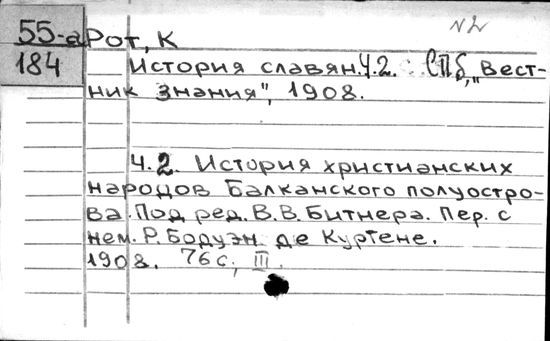 N2
55-а Рот, К
184
История славян. Ч.2. СПб, "Вест-
ник знания", 1908.
Ч.2. История христианских
народов Балканского полуостро-
ва. Под ред. В.В. Битнера. Пер. с
нем. Р. Бодуэн де Куртене.
1908. 76 с., III.